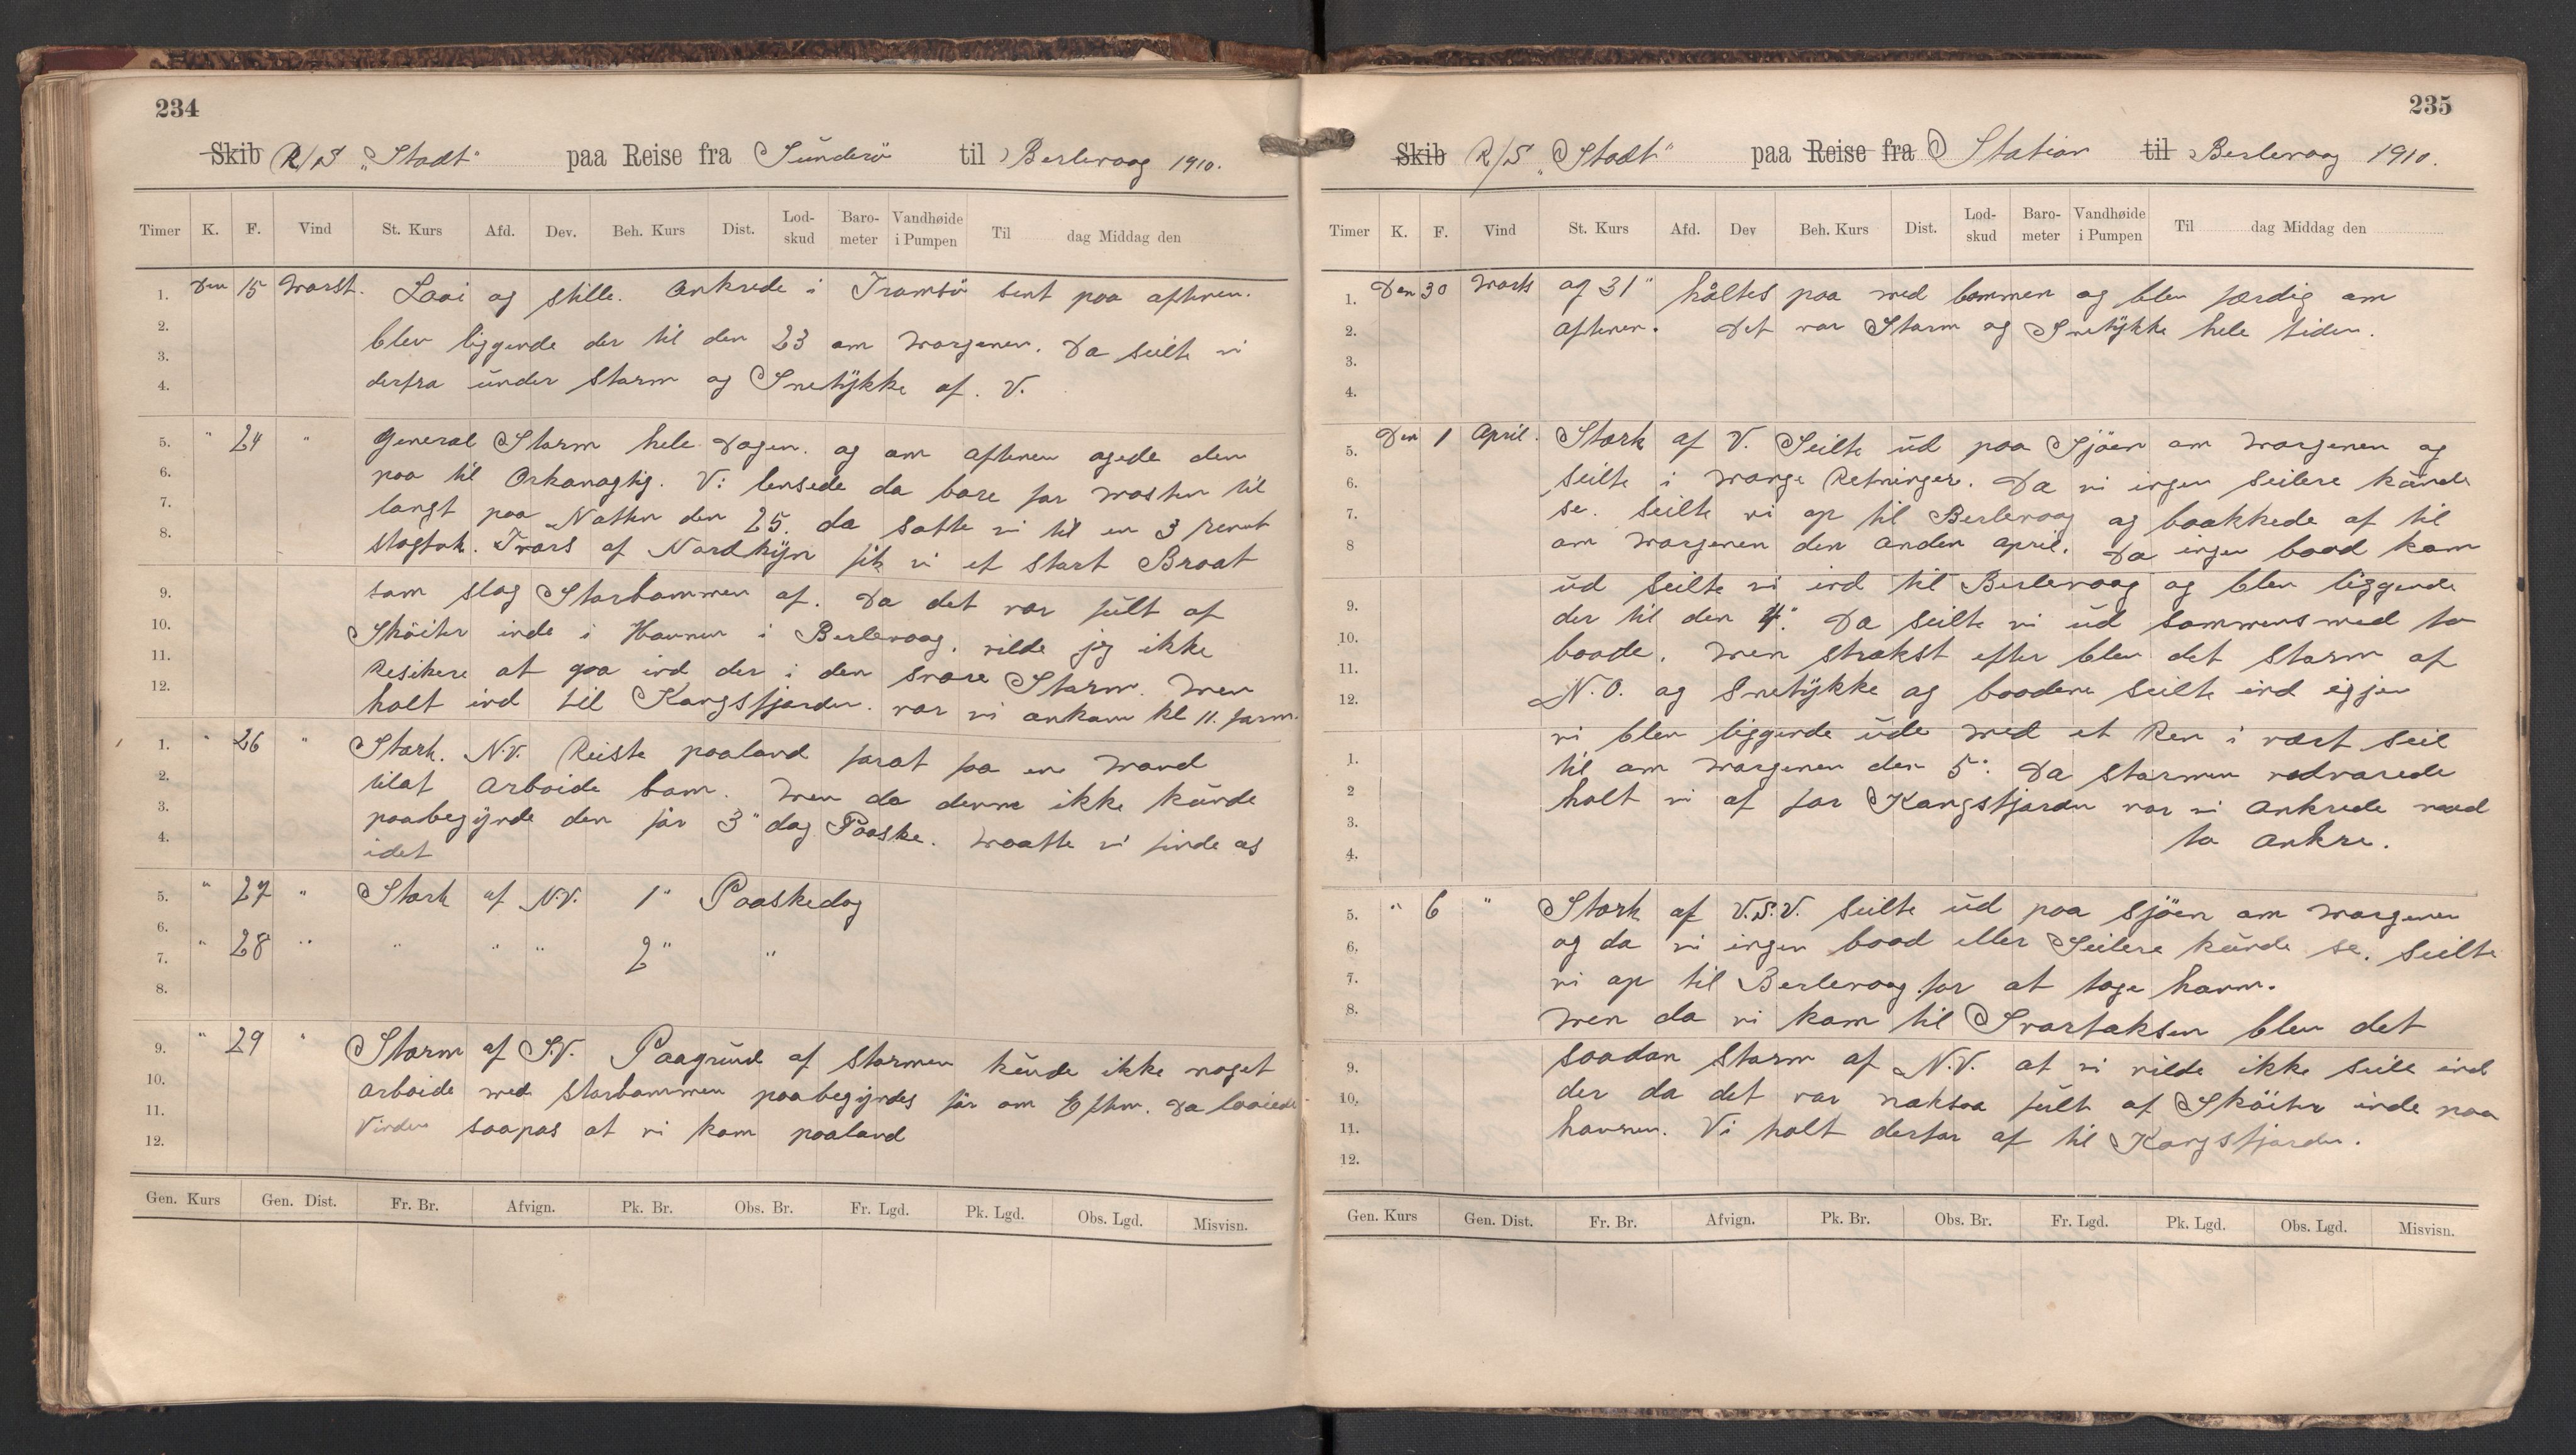 234
Skib R/S „Stadt" paa Reise fra Sunderö til Berlevaag 1910.
Timer K. F. Vind St. Kurs Afd. Dev. Beh. Kurs Dist. Lod-skud Baro-meter Vandhøide i Pumpen Til dag Middag den
1. Den 15 Marst. Laai og stille. Ankrede i Tromsö sent paa aftenen.
2. blev liggende der til den 23 om Morgenen. Da seilte vi
3. derfra under Storm og Snetykke af. V.
4.
5. " 24 " General Storm hele Dagen. og om aftenen ögede den
6. paa til Orkanagtig. Vi lensede da bare for Masten til
7. langt paa Natten den 25. da satte vi til en 3 revet
8. stagfok. Tvars af Nordkyn fik vi et stort Braat
9. som slog Storbommen af. Da det var fült af
10. Sköiter inde i Havnen i Berlevaag. vilde jeg ikke
11. Resikere at gaa ind der i den svare Storm. Men
12. holt ind til Kongsfjorden. var vi ankam kl 11. form.
1. " 26 " Stærk. N.V. Reiste paaland forat faa en Mand
2. tilat Arboide bom. Men da denne ikke kunde
3. paabegynde den för 3" dag Paaske. Maatte vi finde os
4. idet
5. " 27 " Stærk af N.V. 1" Paaskedag
6.
7. " 28 " " " " 2" "
8.
9. " 29 " Storm af S.V. Paagrund af stormen kunde ikke noget
10. arboide med storbommen paabegyndes för om Eftm. Da laaiede
11. Vinden saapas at vi kom paaland
12.
Gen. Kurs Gen. Dist. Fr. Br. Afvign. Pk. Br. Obs. Br. Fr. Lgd. Pk. Lgd. Obs. Lgd. Misvisn.
235
Skib R/S „Stadt" paa Reise fra Station til Berlevaag 1910.
Timer K. F. Vind St. Kurs Afd. Dev Beh. Kurs Dist. Lod-skud Baro-meter Vandhøide i Pumpen Til dag Middag den
1. Den 30 Marts og 31" håltes paa med bommen og blev færdig om
2. aftenen. Det var Storm og Snetykke hele tiden.
3.
4.
5. Den 1 April. Stærk af V. Seilte ud paa Sjöen om Morgenen og
6. seilte i Mange Retninger. Da vi ingen seilere kunde
7. se. seilte vi op til Berlevaag og baakkede af til
8 om Morgenen den anden april. Da ingen baad kom
ud seilte vi ind til Berlevaag og blev liggende
9. der til den 4". Da seilte vi ud sammens med to
10. baade. Men strakst efter blev det storm af
11. N.O. og Snetykke og baadene seilte ind igjen
12. vi blev liggende ude med et Rev i vært seil
1. til om Morgenen den 5". Da stormen vedvarede
2 holt vi af for Kongsfjorden var vi ankrede med
3. to ankre.
4.
5. " 6 " Stærk af V.S.V. seilte ud paa sjöen om Morgenen
6. og da vi ingen baad eller Seilere kunde se. seilte
7. vi op til Berlevaag for at tage havn.
8. Men da vi kom til Svartoksen blev det
9. saadan storm af N.V. at vi vilde ikke seile ind
10. der da det var noksaa fült af Sköiter inde paa
11. havnen. Vi holt derfor af til Kongsfjorden.
12.
Gen. Kurs Gen. Dist. Fr. Br. Afvign. Pk. Br. Obs. Br. Fr. Lgd. Pk. Lgd. Obs. Lgd. Misvisn.